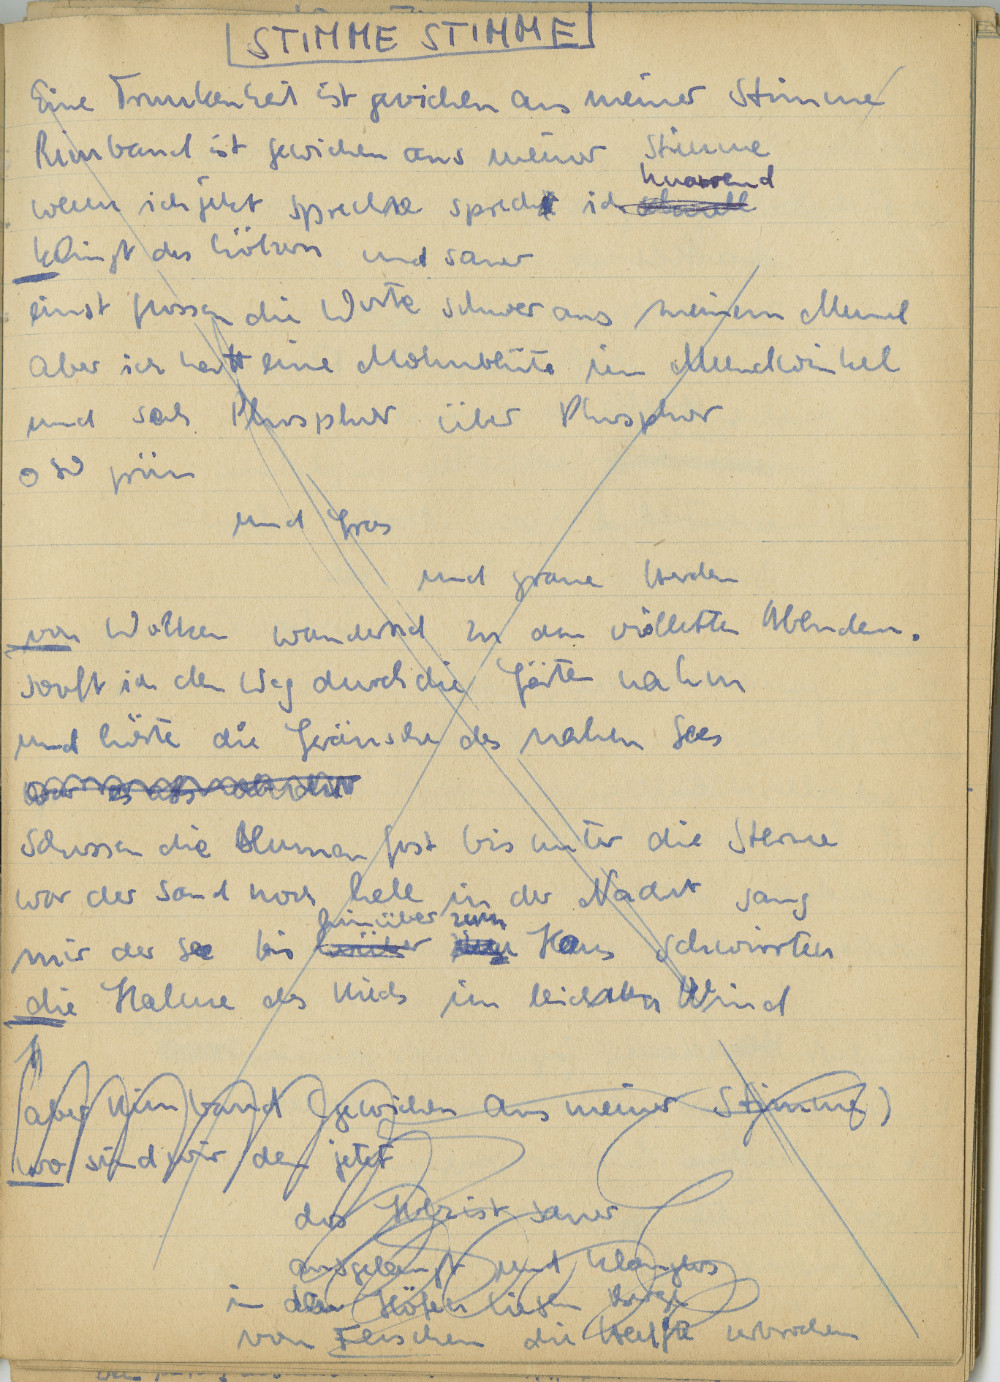 STIMME STIMME
Eine Trunkenheit ist gewichen aus meiner Stimme
Rimbaud ist gewichen aus meiner Stimme
wenn ich jetzt spreche spreche ich knarrend
klingt das hölzern und sauer
einst flossen die Worte schwer aus meinem Mund
Aber ich hatte eine Mohnblüte im Mundwinkel
und sah Phosphor über Phosphor
o so grün
und Gras
und graue Herden
von Wolken wandernd zu den violetten Abenden.
sooft ich den Weg durch die Gärten nahm
und hörte die Geräusche des nahen Sees
schossen die Blumen fast bis unter die Sterne
war der Sand noch hell in der Nacht sang
mir der See bis hinüber zum Haus schwirrten
die Halme des Rieds im leichten Wind
aber Rimbaud (gewichen aus meiner Stimme)
wo sind wir den jetzt
das Holz ist sauer
ausgelaugt und klanglos
in den Höfen liegen
von Flaschen die Hälse erbrochen